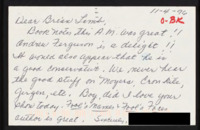 11-4-96
O-BK
Dear Brian Lamb,
Book note this A.M. was great!!
Andrew Ferguson is a delight!!
It would also appear that he is
a good conservative. We never hear
the good stuff on "Moyers, Cronkite
etc. Boy, did I love your
show today. Fool's Names - Fool's Faces
author is great. Sincere,